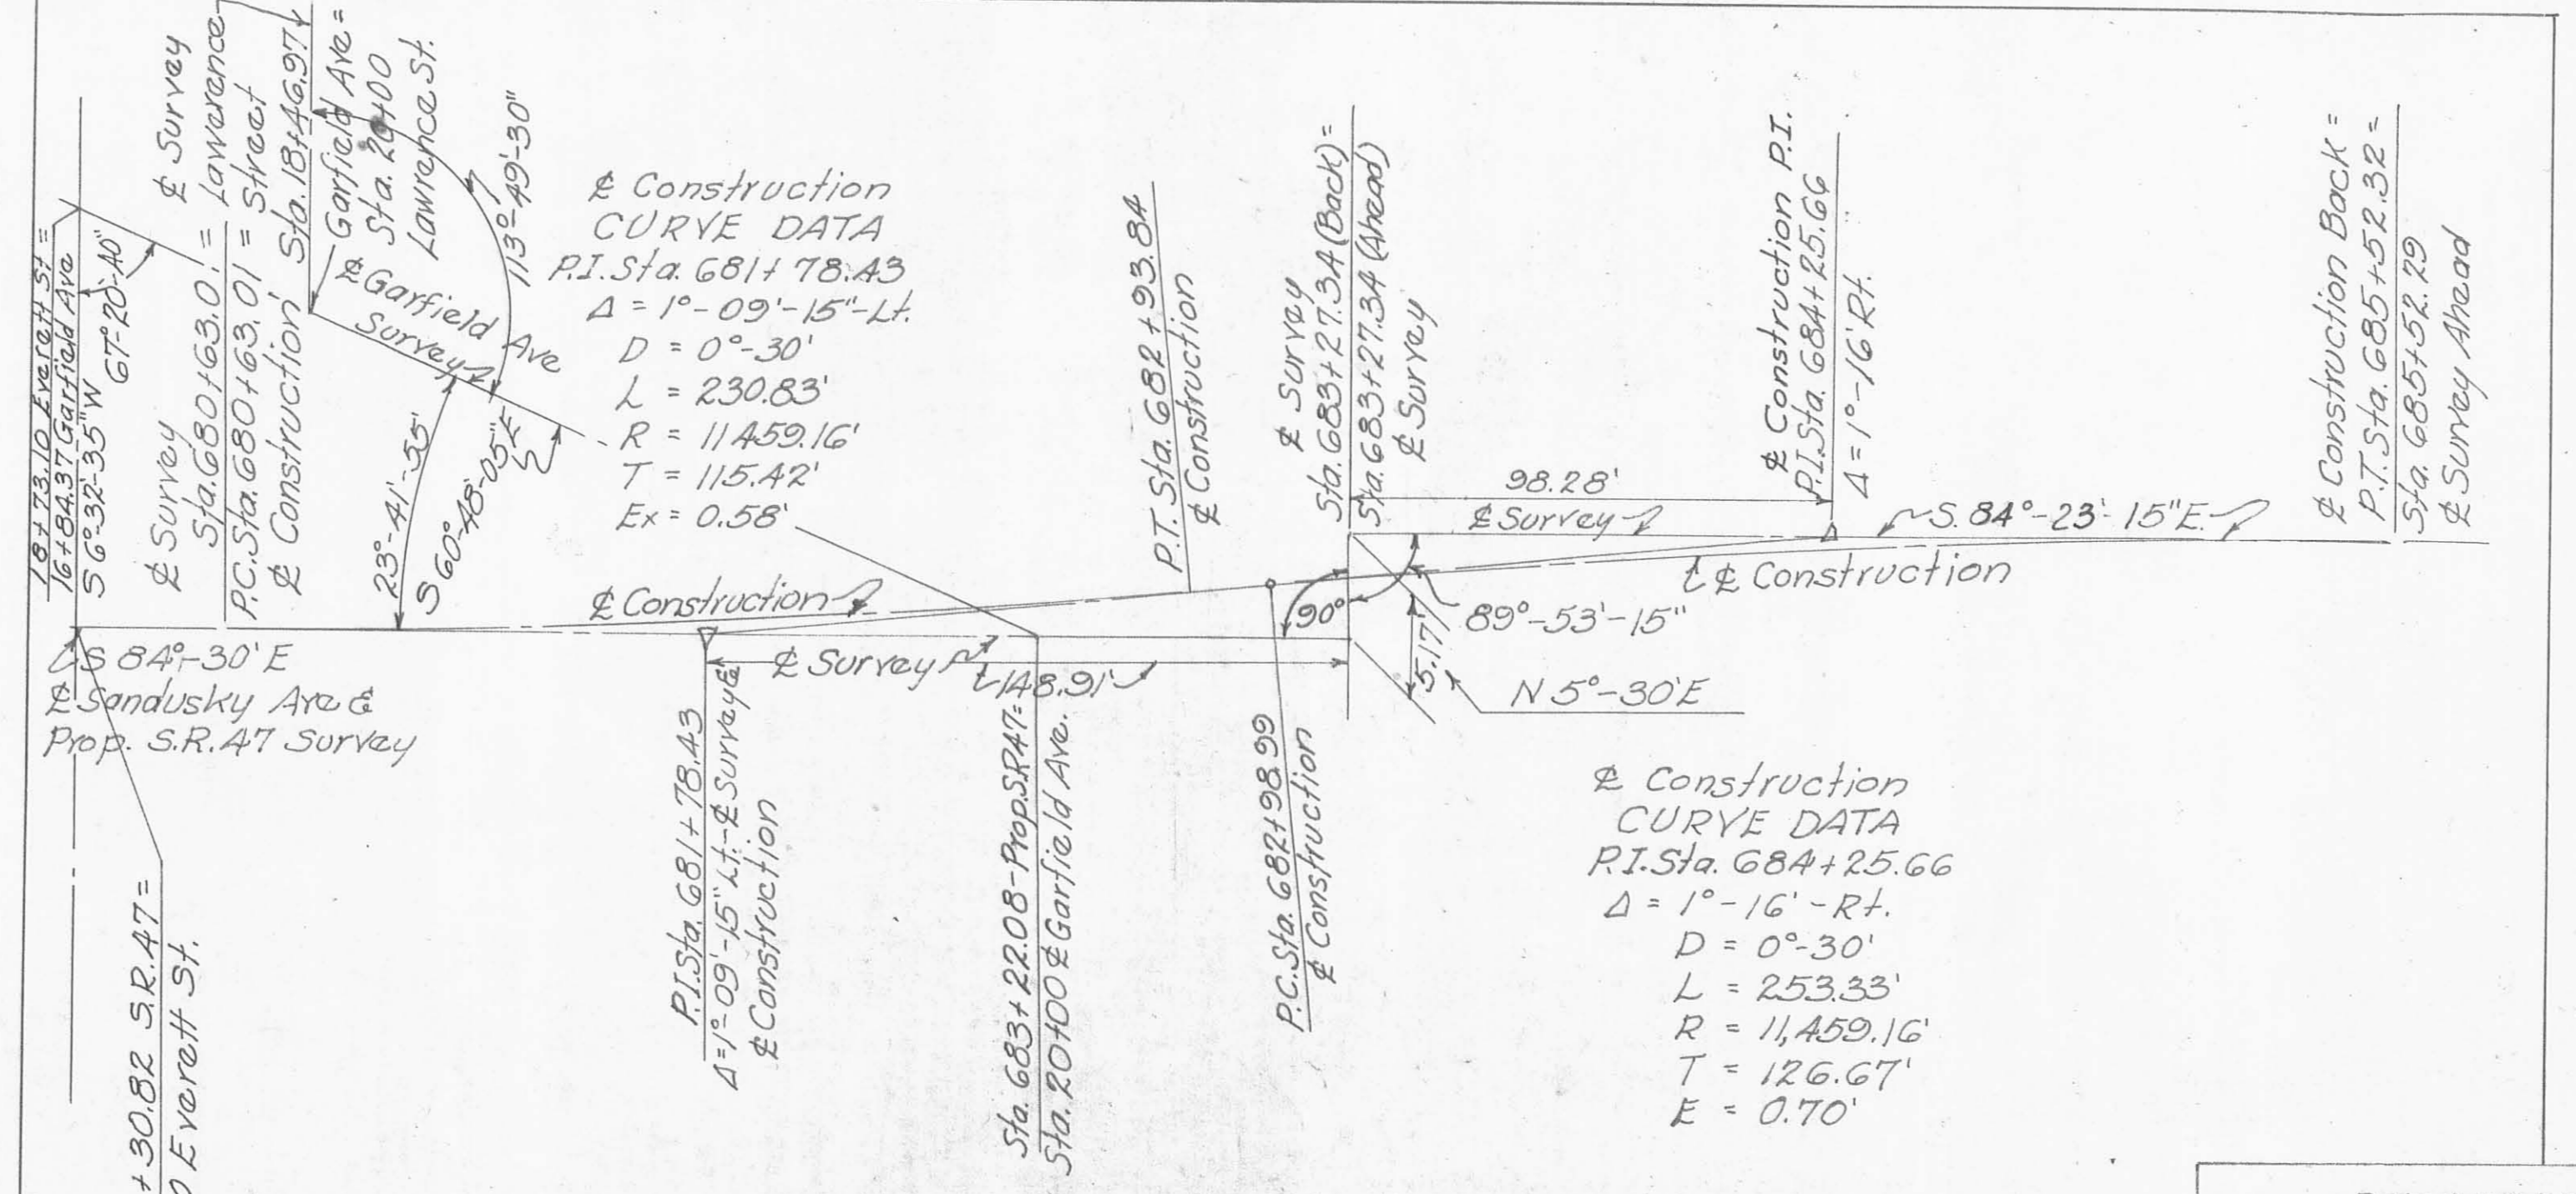 18+73.10 Everett St =
16+84.37 Garfield Ave
S 6°-32'-35"W
67°-20'-40"
₵ Survey
Lawerence
Street
Sta. 18+46.97
₵ Survey
Sta. 680+63.01 =
P.C. Sta. 680+63.01 =
₵ Construction
Garfield Ave =
Sta. 20+00
Lawrence St.
113°-49'-30"
₵ Garfield Ave
Survey
23°-41'-55"
S 60°-48'-05" E
₵ Construction
CURVE DATA
P.I. Sta. 681+78.43
Δ = 1°-09'-15"-Lt.
D = 0°-30'
L = 230.83'
R = 11459.16'
T = 115.42'
Ex = 0.58'
P.T. Sta. 682+93.84
₵ Construction
₵ Survey
Sta. 683+27.34 (Back) =
Sta. 683+27.34 (Ahead)
₵ Survey
98.28'
₵ Survey
₵ Construction P.I.
P.I. Sta. 684+25.66
Δ = 1°-16' Rt.
S. 84°-23'-15"E.
₵ Construction Back =
P.T. Sta. 685+52.32 =
Sta. 685+52.29
₵ Survey Ahead
₵ Construction
₵ Construction
90°
89°-53'-15"
5.17'
N 5°-30'E
S 84°-30'E
₵ Sandusky Ave &
Prop. S.R. 47 Survey
₵ Survey
148.91'
P.I. Sta. 681+78.43
Δ=1°-09'-15" Lt.-₵ Survey &
₵ Construction
Sta. 683+22.08-Prop. S.R. 47=
Sta. 20+00 ₵ Garfield Ave.
P.C. Sta. 682+98.99
₵ Construction
₵ Construction
CURVE DATA
P.I. Sta. 684+25.66
Δ = 1°-16'-Rt.
D = 0°-30'
L = 253.33'
R = 11,459.16'
T = 126.67'
E = 0.70'
+30.82 S.R. 47=
Everett St.